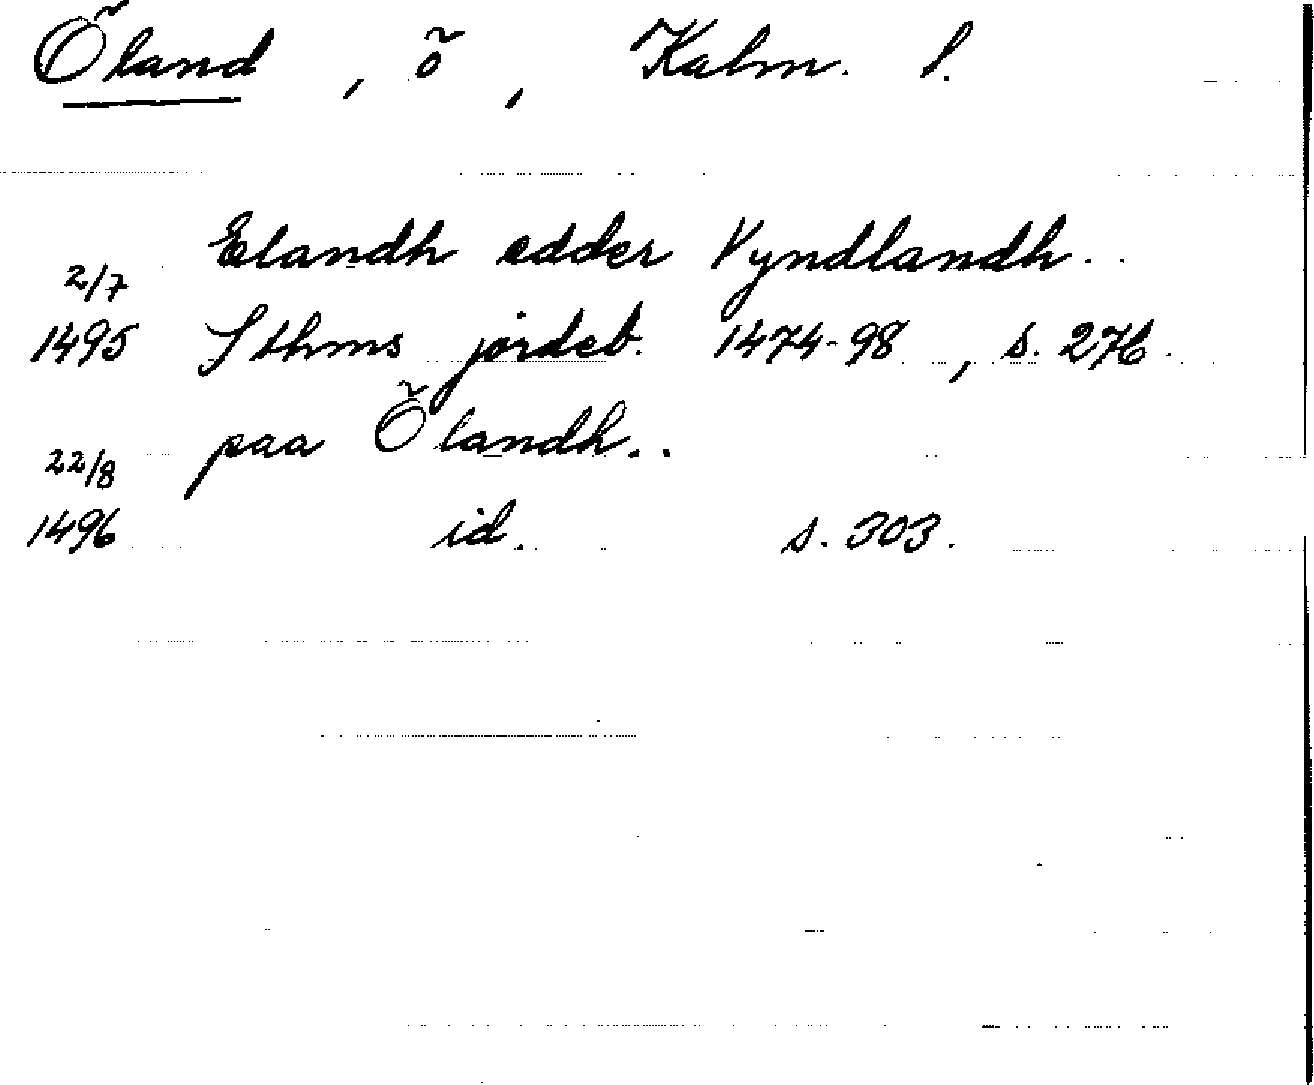 Öland, ö, Kalm. l.
Elandh edder Vyndlandh..
2/7
1495 Sthms jordeb. 1474-98, s. 276.
paa Õlandh..
22/8
1496 id. s. 303.